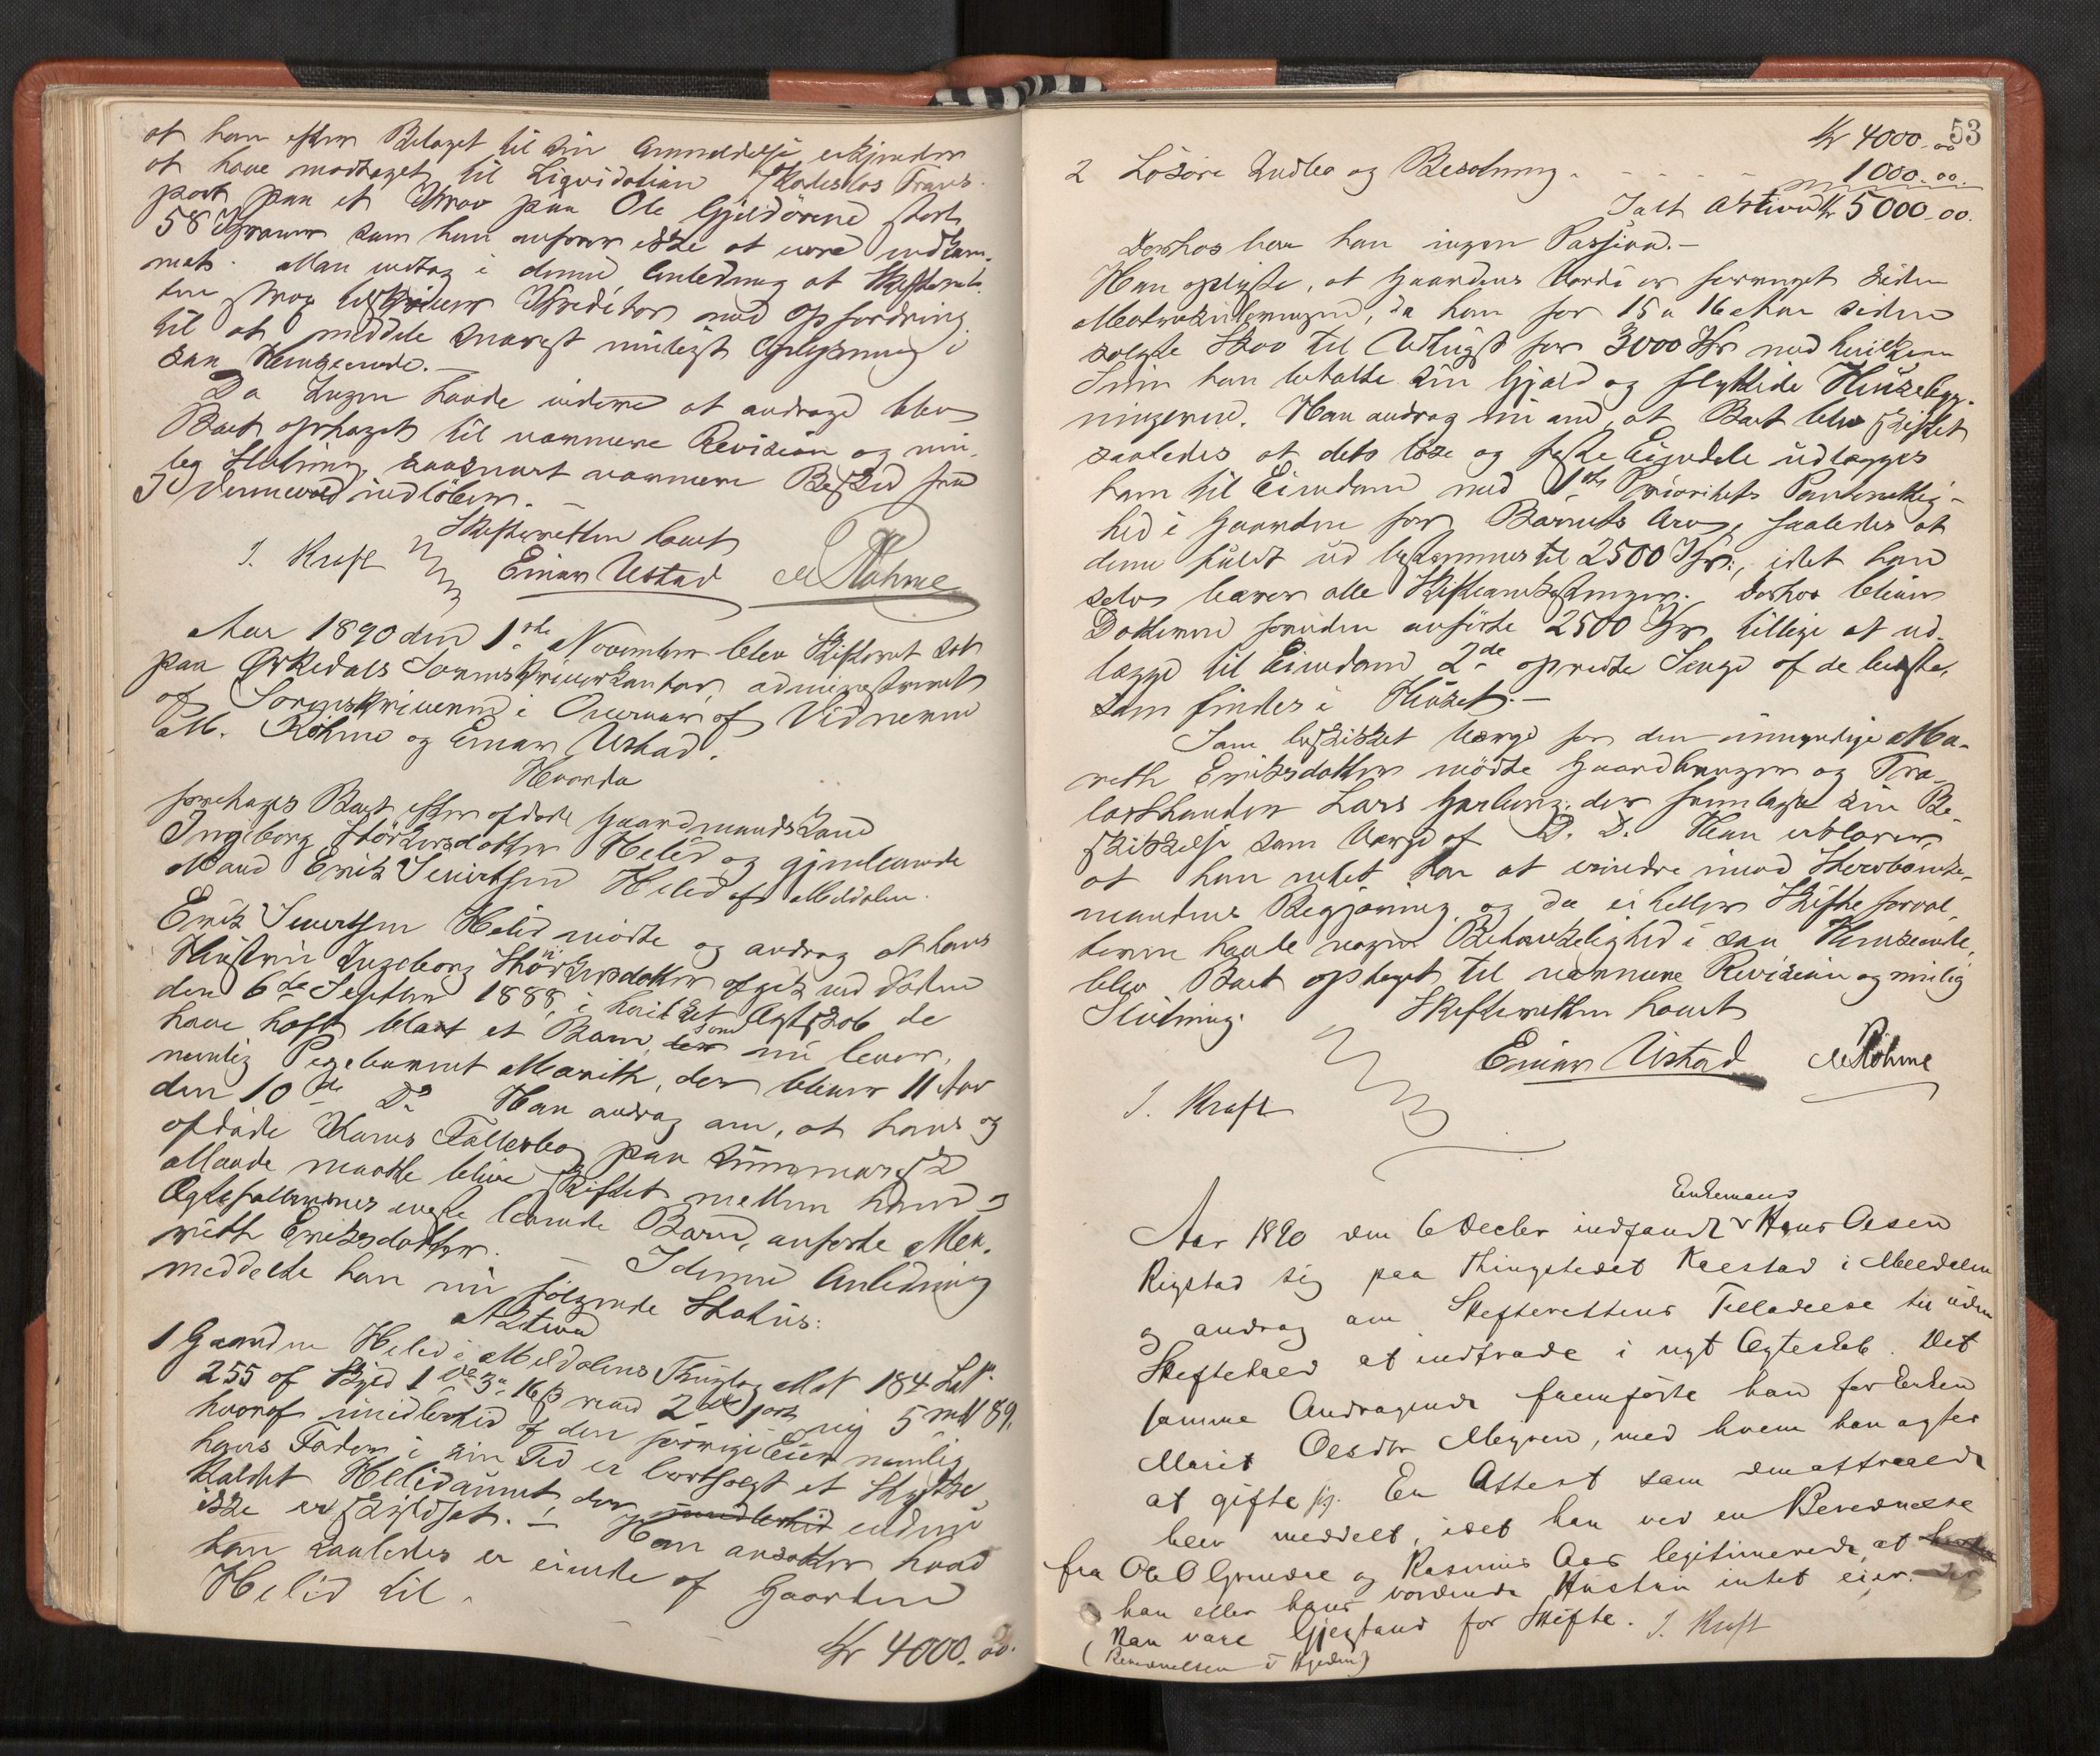 at han efter Bilaget til sin Anmeldelse erkjender
at have modtaget til Liqvidation skadeslos Trans-
port paa et Krav paa Ole Gjeldörend stort
58 Kroner som han anförer ikke at være indkom-
met. Man vedtog i denne Anledning at Skifteret-
ten strax tilskriver Kreditor med Opfordring
til at meddele snarest muligst Oplysning i
saa Henseende.-
Da Ingen havde videre at andrage blev
Boet optaget til nærmere Revision og mu-
lig Slutning, saasnart nærmere Besked fra
indlöber.-
Skifteretten hævet
I. Kraft Einar Ustad M Røhme
Aar 1890 den 1ste November blev Skifteret sat
paa Ørkedals Sorenskriverkontor, administreret
af Sorenskriveren i Overvær af Vidnerne
M. Røhme og Einar Ustad.
Hvorda
foretages Boet efter afdøde Gaardmandskone
Ingeborg Störkersdatter Helid og gjenlevende
Mand Erik Sivertsen Helid af Meldalen.
Erik Sivertsen Helid mödte og androg at hans
Hustru Ingeborg Störkersdatter afgik ved Döden
den 6te Septbr 1888, i hvilket Ægteskab de
have havt blot et Barn, der som nu lever,
nemlig Pigebarnet Marith, der bliver 11 Aar
den 10de Do. Han androg om, at hans og
afdøde Kones Fællesbo paa summarisk
Maade maatte blive skiftet mellem ham og
Ægtefællernes eneste levende Barn, anførte Ma-
rith Eriksdatter. - I denne Anledning
meddelte han nu følgende Status:
Aktiva
1 Gaarden Helid i Meldalens Thinglag Mat N 184 L N
255 af Skyld 1 16 ß med 2 ort ny 5 mk 89,
hvoraf imidlertid af den forrige Eier nemlig
hans Fader i sin Tid er bortsolgt et Stykke
kaldet Helidaunet, der imidlertid endnu
ikke er skyldsat. - Han ansætter hvad
han saaledes er eiende af Gaarden
Helid til - - Kr 4000.00.
53
Kr 4000.00
2 Lösöre Indbo og Besætning - - - - 1000.00.
Ialt Aktiva Kr 5000.00.
Derhos har han ingen Passiva.-
Han oplyste, at Gaardens Værdi er forringet siden
Matrikuleringen, da han for 15 a 16 Aar siden
solgte Skov til Udhugst for 3000 Kr med hvilken
Sum han betalte sin Gjæld og flyttede Husebyg-
ningerne. Han androg nu om, at Boet blev skiftet
saaledes at dets löse og faste Eiendele udlægges
ham til Eiendom med 1ste Prioritets Panterettig-
hed i Gaarden for Barnets Arv, saaledes at
denne fuldt ud bestemmes til 2500 Kr:, idet han
selv bærer alle Skifteomkostninger. Derhos bliver
Datteren foruden anförte 2500 Kr tillige at ud-
lægge til Eiendom 2de opredte Senge af de bedste,
som findes i Huset.-
Som beskikket Værge for den umyndige Ma-
rith Eriksdatter mödte Gaardbruger og Træ-
lasthandler Lars Garberg, der fremlagde sin Be-
skikkelse som Værge af D. D. Han erklærer,
at han intet har at erindre imod Stervboenke-
mandens Begjæring, og da ei heller Skifteforval-
teren havde nogen Betænkelighed i saa Henseende,
blev Boet optaget til nærmere Revision og mulig
Slutning. Skifteretten hævet
Einar Ustad M Røhme
I. Kraft
Enkemand
Aar 1890 den 6 Decbr indfandt Hans Olsen
Rigstad sig paa Thingstedet Kalstad i Meldalen
og androg om Skifterettens Tilladelse til uden
Skiftehold at indtræde i nyt Ægteskab. Det
samme Andragende fremförte han for Enken
Marit Olsdtr , med hvem han agter
at gifte sig. En Attest som omattraaedes
blev meddelt, idet han ved en Beviidnelse
fra Ole O Grindal og Rasmus Aas legitimerede, at
han eller hans vordende Hustru intet eier der
kan være Gjenstand for Skifte. I. Kraft
(Bevidnelsen i Hjeden)